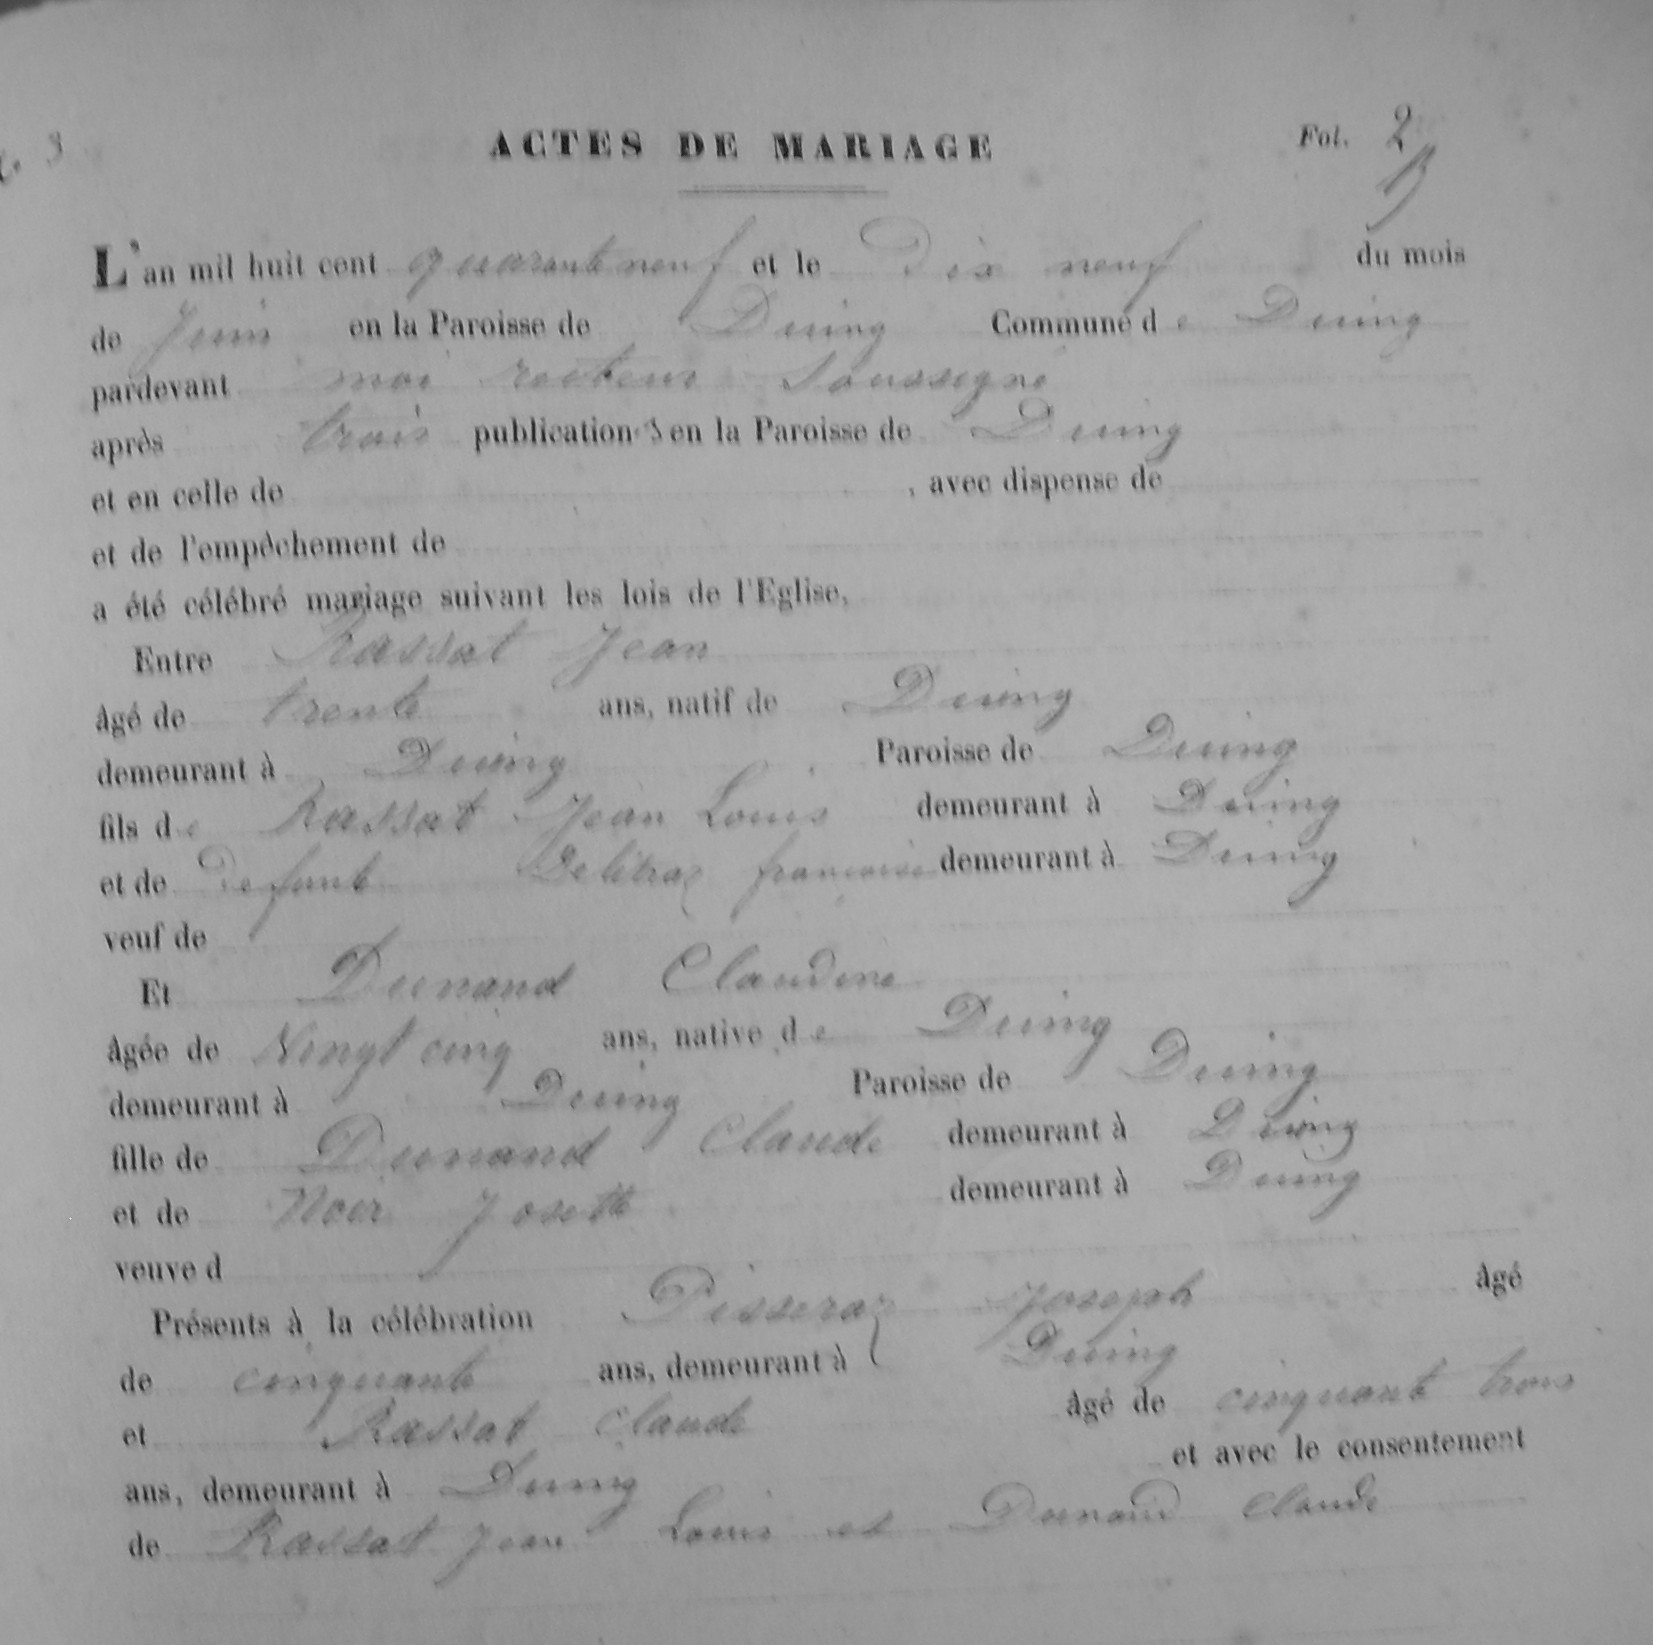 3
ACTES DE MARIAGE
Fol. 2
L'an mil huit cent quarante neuf et le Dix neuf du mois
de Juin en la Paroisse de Duing Commune de Duing
pardevant moi recteur soussigné
après trois publications en la Paroisse de Duing
et en celle de , avec dispense de
et de l'empéchement de
a été célébré mariage suivant les lois de l'Eglise,
Entre Rassat Jean
âgé de trente ans, natif de Duing
demeurant à Duing Paroisse de Duing
fils de Rassat Jean Louis demeurant à Duing
et de Defunte Delétraz françoise demeurant à Duing
veuf de
Et Dunand Claudine
âgée de Vingt cinq ans, native de Duing
demeurant à Duing Paroisse de Duing
fille de Dunand Claude demeurant à Duing
et de Noir Josette demeurant à Duing
veuve d
Présents à la célébration Pisseraz Joseph âgé
de cinquante ans, demeurant à Duing
et Rassat Claude âgé de cinquante trois
ans, demeurant à Duing et avec le consentement
de Rassat Jean Louis et Dunand Claude